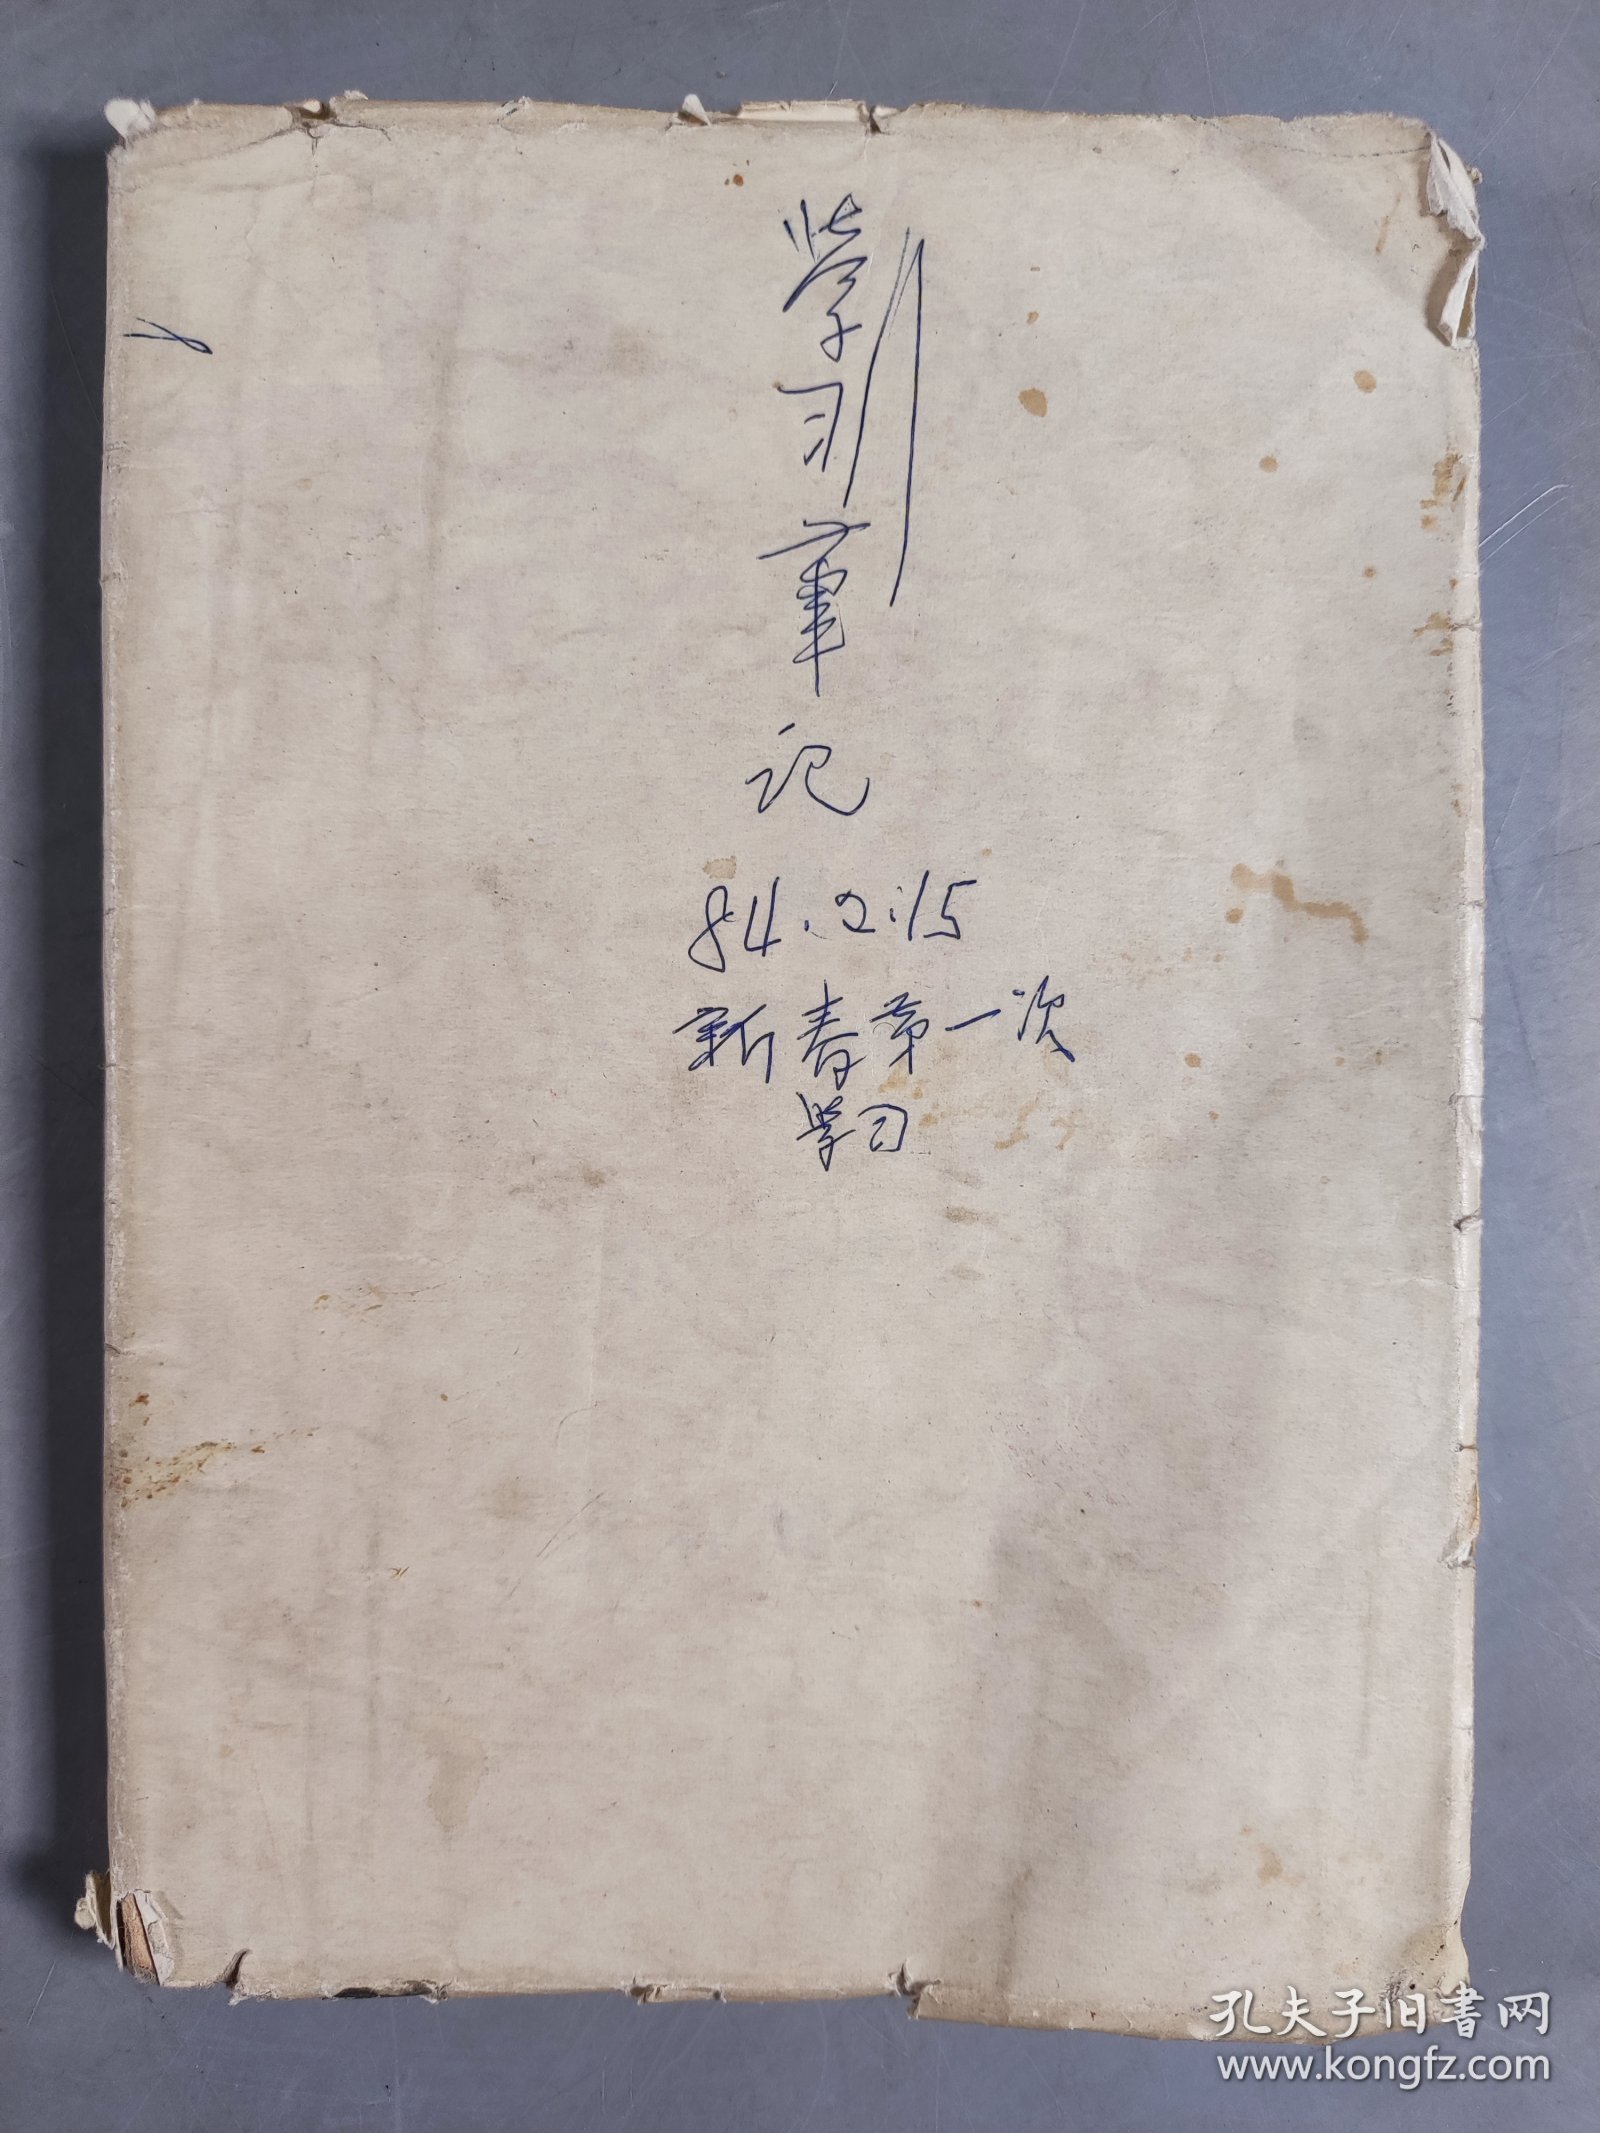 学习筆记
84.2.15
新春第一次
学习
孔夫子旧书网
www.kongfz.com